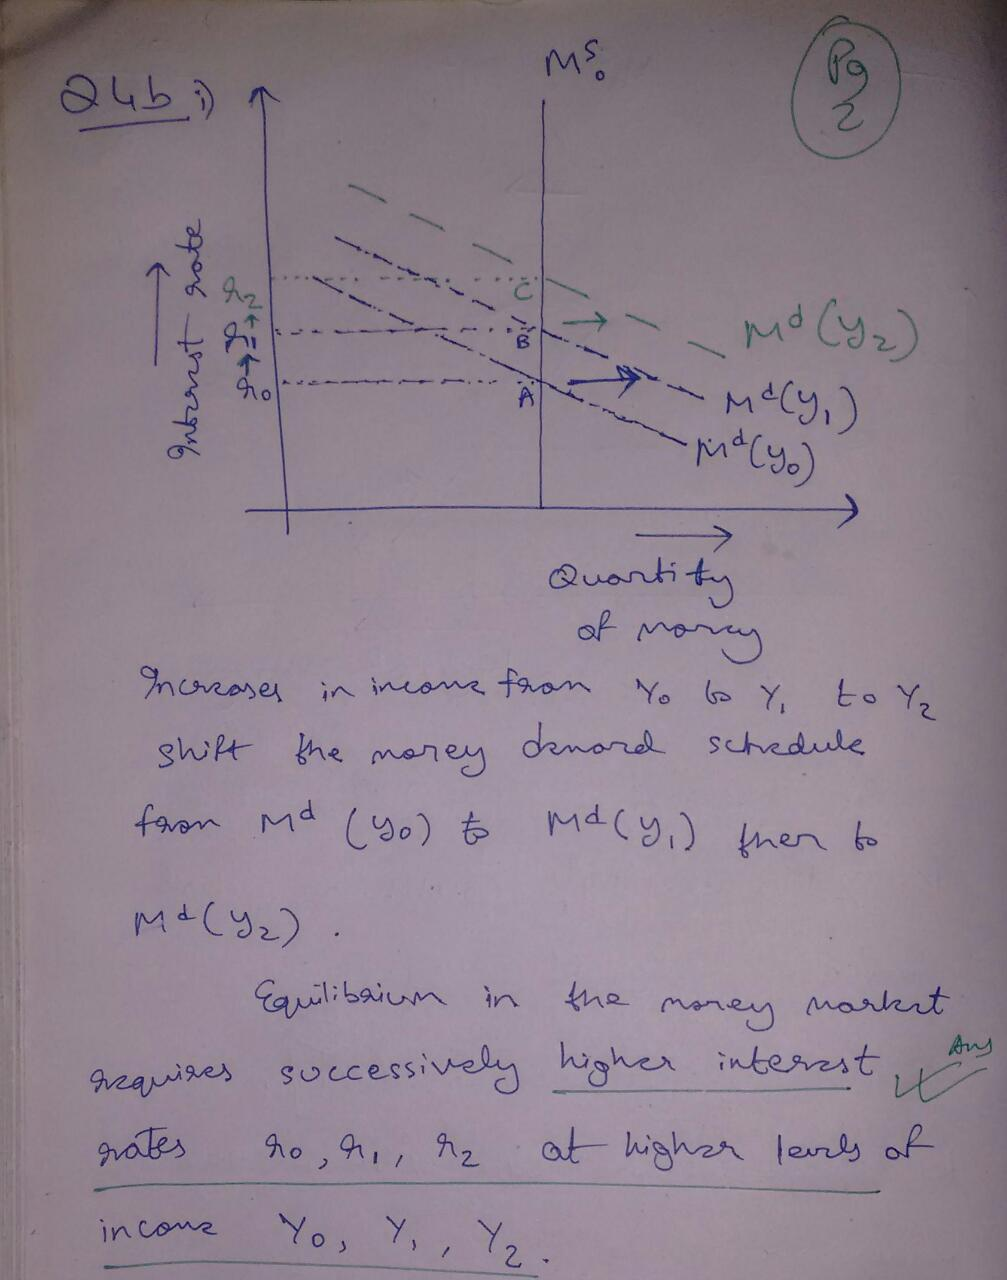 Q4b i)
Pg
2
Mˢ₀
Interest rate
r₂
r₁
r₀
C
B
A
Mᵈ(y₂)
Mᵈ(y₁)
Mᵈ(y₀)
Quantity
of money
Increases in income from Y₀ to Y₁ to Y₂
shift the money demand schedule
from Mᵈ (y₀) to Mᵈ(y₁) then to
Mᵈ(y₂).
Equilibrium in the money market
requires successively higher interest
Ans
rates r₀, r₁, r₂ at higher levels of
income Y₀, Y₁, Y₂.